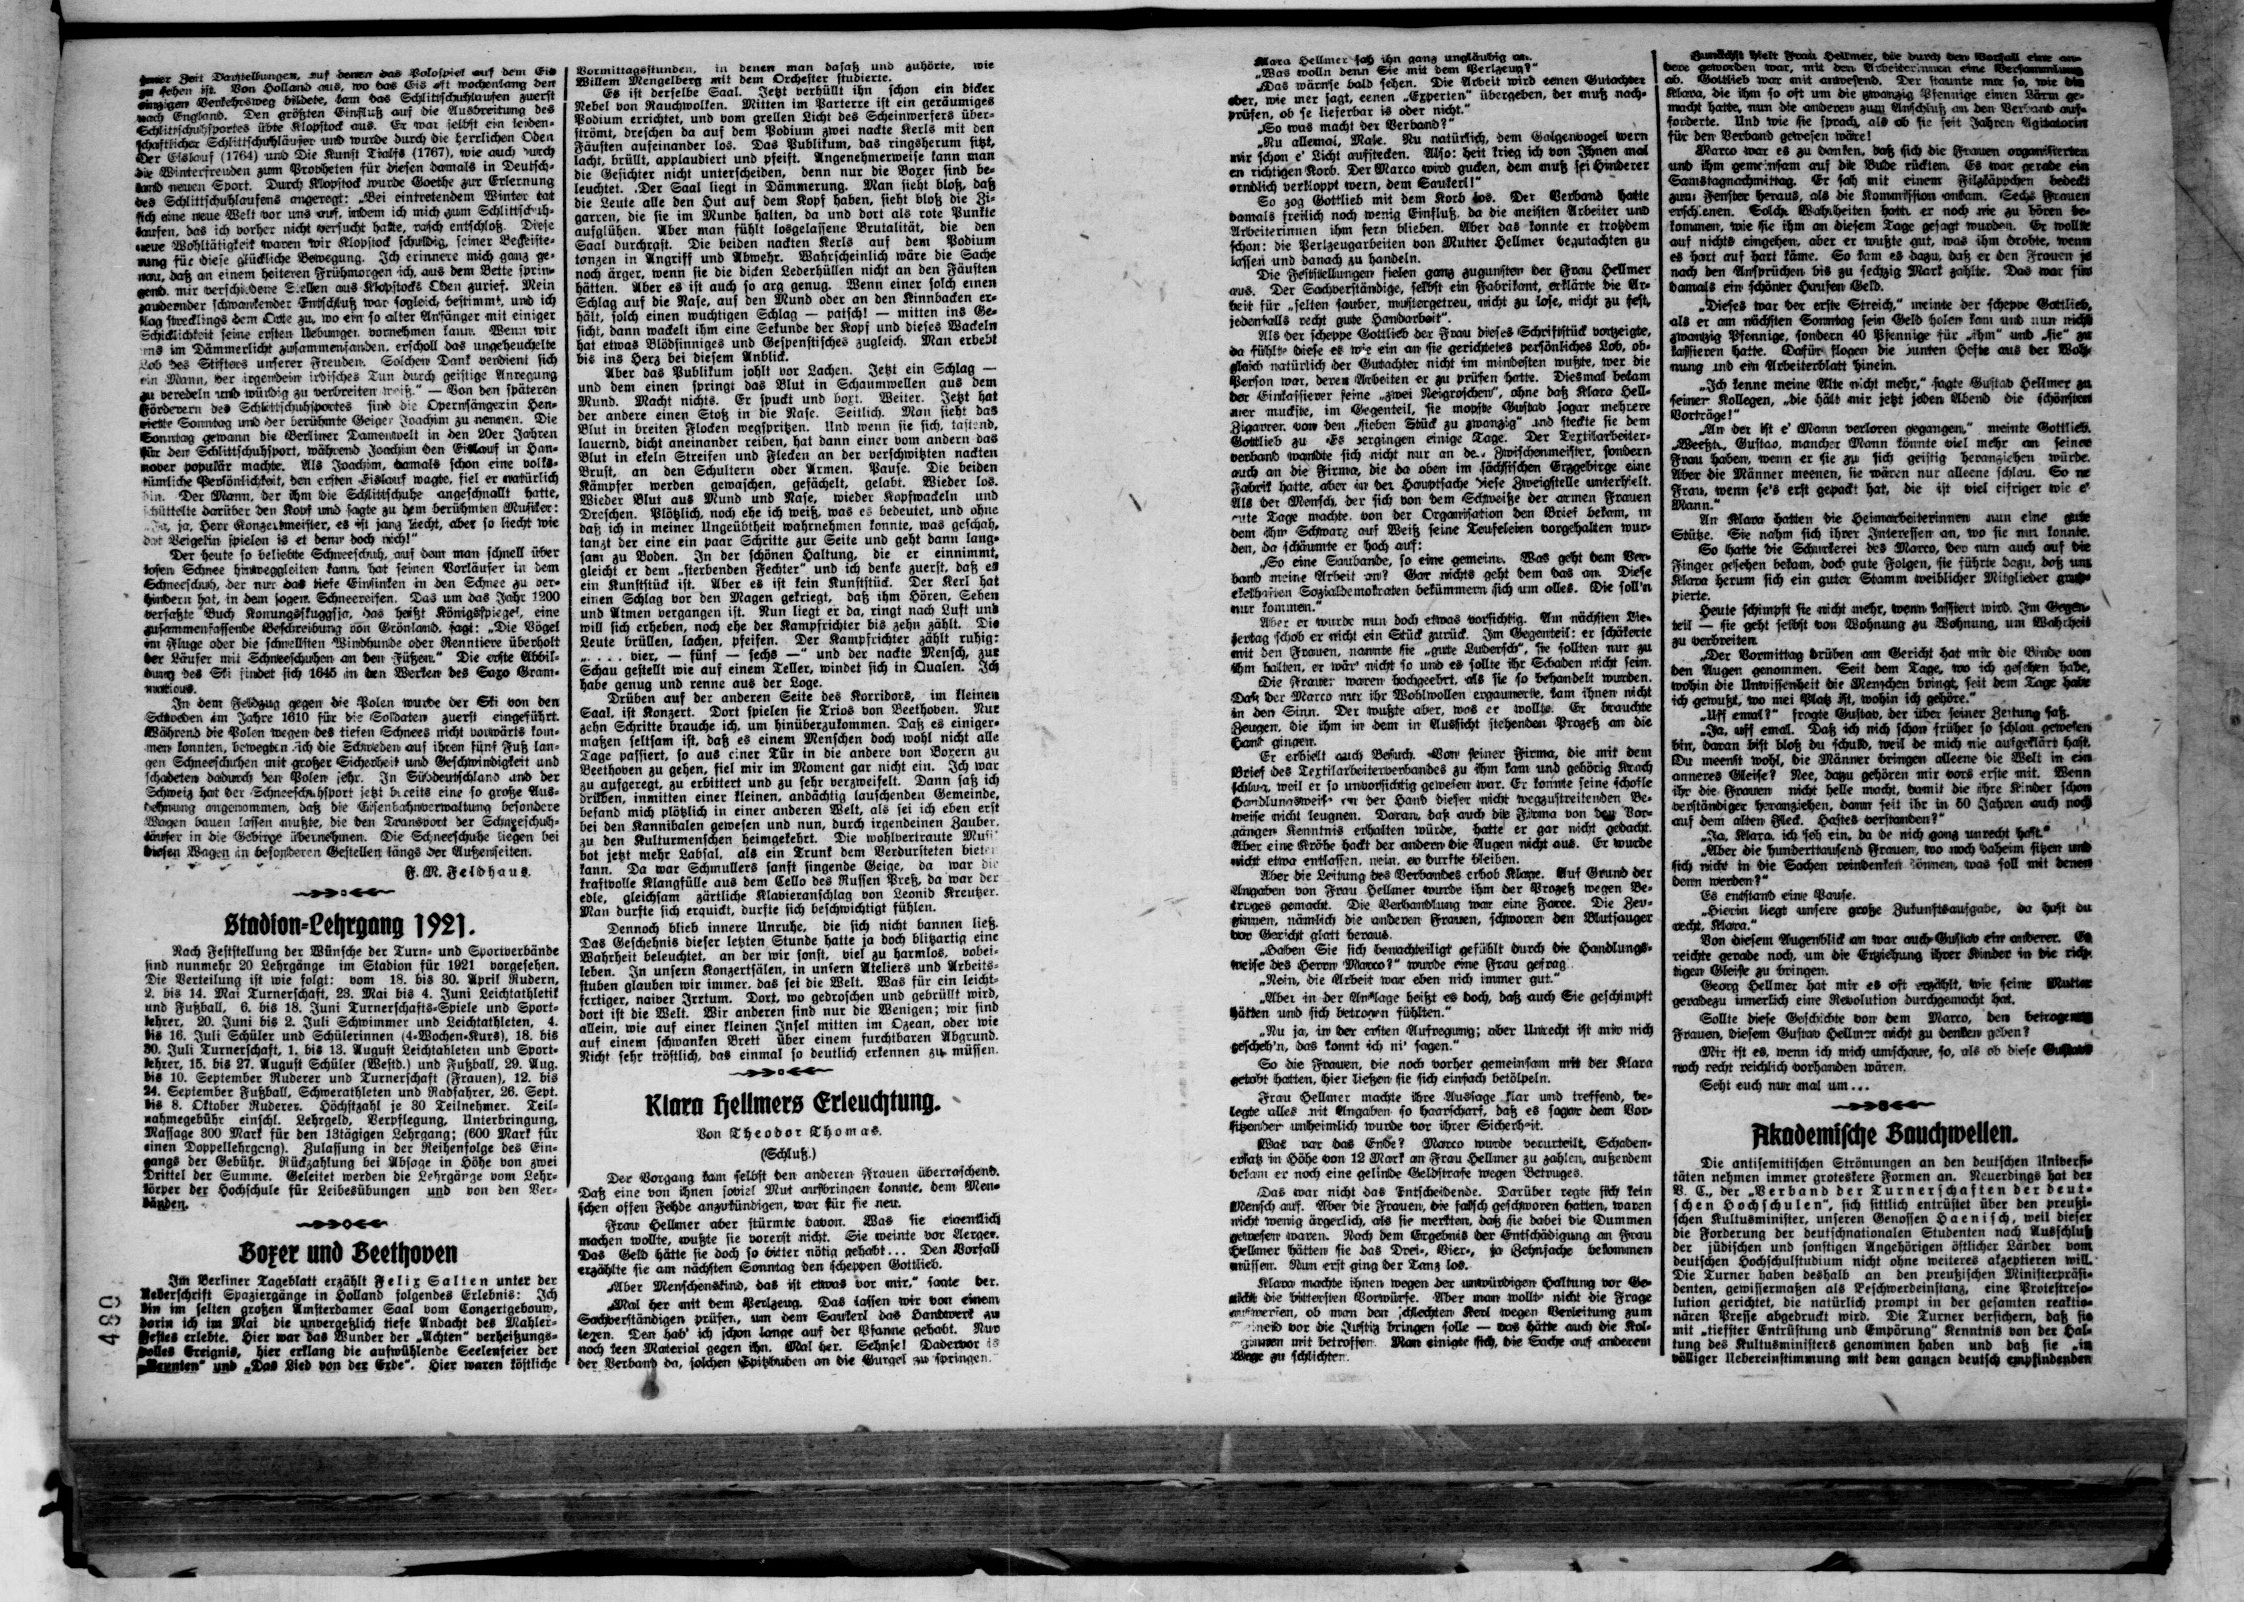 jener Zeit Darstellungen, auf denen das Polospiel auf dem Eis
zu sehen ist. Von Holland aus, wo das Eis oft wochenlang den
einzigen Verkehrsweg bildete, kam das Schlittschuhlaufen zuerst
nach England. Den größten Einfluß auf die Ausbreitung des
Schlittschuhsportes übte Klopstock aus. Er war selbst ein leiden-
schaftlicher Schlittschuhläufer und wurde durch die herrlichen Oden
Der Eislauf (1764) und Die Kunst Tialfs (1767), wie auch durch
die Winterfreuden zum Propheten für diesen damals in Deutsch-
land neuen Sport. Durch Klopstock wurde Goethe zur Erlernung
des Schlittschuhlaufens angeregt: „Bei eintretendem Winter tat
sich eine neue Welt vor uns auf, indem ich mich zum Schlittschuh-
laufen, das ich vorher nicht versucht hatte, rasch entschloß. Diese
neue Wohltätigkeit waren wir Klopstock schuldig, seiner Begeiste-
rung für diese glückliche Bewegung. Ich erinnere mich ganz ge-
nau, daß an einem heiteren Frühmorgen ich, aus dem Bette sprin-
gend, mir verschiedene Stellen aus Klopstocks Oden zurief. Mein
zaudernder schwankender Entschluß war sogleich bestimmt, und ich
flog strecklings dem Orte zu, wo ein so alter Anfänger mit einiger
Schicklichkeit seine ersten Uebungen vornehmen kann. Wenn wir
uns im Dämmerlicht zusammenfanden, erscholl das ungeheuchelte
Lob des Stifters unserer Freuden. Solchen Dank verdient sich
ein Mann, der irgendein irdisches Tun durch geistige Anregung
zu veredeln und würdig zu verbreiten weiß.“ — Von den späteren
Förderern des Schlittschuhsportes sind die Opernsängerin Hen-
riette Sonntag und der berühmte Geiger Joachim zu nennen. Die
Sonntag gewann die Berliner Damenwelt in den 20er Jahren
für den Schlittschuhsport, während Joachim den Eislauf in Han-
nover populär machte. Als Joachim, damals schon eine volks-
tümliche Persönlichkeit, den ersten Eislauf wagte, fiel er natürlich
hin. Der Mann, der ihm die Schlittschuhe angeschnallt hatte,
schüttelte darüber den Kopf und sagte zu dem berühmten Musiker:
„Ja, ja, Herr Konzertmeister, es ist janz liecht, aber so liecht wie
dat Veigelin spielen is et denn doch nich!“
Der heute so beliebte Schneeschuh, auf dem man schnell über
losen Schnee hinweggleiten kann, hat seinen Vorläufer in dem
Schneeschuh, der nur das tiefe Einsinken in den Schnee zu ver-
hindern hat, in dem sogen. Schneereifen. Das um das Jahr 1200
verfaßte Buch Konungskuggsja, das heißt Königsspiegel, eine
zusammenfassende Beschreibung von Grönland, sagt: „Die Vögel
im Fluge oder die schnellsten Windhunde oder Renntiere überholt
der Läufer mit Schneeschuhen an den Füßen.“ Die erste Abbil-
dung des Ski findet sich 1645 in den Werken des Saxo Gram-
maticus.
In dem Feldzug gegen die Polen wurde der Ski von den
Schweden im Jahre 1610 für die Soldaten zuerst eingeführt.
Während die Polen wegen des tiefen Schnees nicht vorwärts kom-
men konnten, bewegten sich die Schweden auf ihren fünf Fuß lan-
gen Schneeschuhen mit großer Sicherheit und Geschwindigkeit und
schadeten dadurch den Polen sehr. In Süddeutschland und der
Schweiz hat der Schneeschuhsport jetzt bereits eine so große Aus-
dehnung angenommen, daß die Eisenbahnverwaltung besondere
Wagen bauen lassen mußte, die den Transport der Schneeschuh-
läufer in die Gebirge übernehmen. Die Schneeschuhe liegen bei
diesen Wagen in besonderen Gestellen längs der Außenseiten.
F. M. Feldhaus.
Stadion-Lehrgang 1921.
Nach Feststellung der Wünsche der Turn- und Sportverbände
sind nunmehr 20 Lehrgänge im Stadion für 1921 vorgesehen.
Die Verteilung ist wie folgt: vom 18. bis 30. April Rudern,
2. bis 14. Mai Turnerschaft, 23. Mai bis 4. Juni Leichtathletik
und Fußball, 6. bis 18. Juni Turnerschafts-Spiele und Sport-
lehrer, 20. Juni bis 2. Juli Schwimmer und Leichtathleten, 4.
bis 16. Juli Schüler und Schülerinnen (4-Wochen-Kurs), 18. bis
30. Juli Turnerschaft, 1. bis 13. August Leichtahleten und Sport-
lehrer, 15. bis 27. August Schüler (Westd.) und Fußball, 29. Aug.
bis 10. September Ruderer und Turnerschaft (Frauen), 12. bis
24. September Fußball, Schwerathleten und Radfahrer, 26. Sept.
bis 8. Oktober Ruderer. Höchstzahl je 30 Teilnehmer. Teil-
nahmegebühr einschl. Lehrgeld, Verpflegung, Unterbringung,
Massage 300 Mark für den 13tägigen Lehrgang; (600 Mark für
einen Doppellehrgang). Zulassung in der Reihenfolge des Ein-
gangs der Gebühr. Rückzahlung bei Absage in Höhe von zwei
Drittel der Summe. Geleitet werden die Lehrgänge vom Lehr-
körper der Hochschule für Leibesübungen und von den Ver-
bänden.
Boxer und Beethoven
Im Berliner Tageblatt erzählt Felix Salten unter der
Ueberschrift Spaziergänge in Holland folgendes Erlebnis: Ich
bin im selten großen Amsterdamer Saal vom Conzertgebouw,
darin ich im Mai die unvergeßlich tiefe Andacht des Mahler-
Festes erlebte. Hier war das Wunder der „Achten“ verheißungs-
volles Ereignis, hier erklang die aufwühlende Seelenfeier der
„Neunten“ und „Das Lied von der Erde“. Hier waren köstliche
Vormittagsstunden, in denen man dasaß und zuhörte, wie
Willem Mengelberg mit dem Orchester studierte.
Es ist derselbe Saal. Jetzt verhüllt ihn schon ein dicker
Nebel von Rauchwolken. Mitten im Parterre ist ein geräumiges
Podium errichtet, und vom grellen Licht des Scheinwerfers über-
strömt, dreschen da auf dem Podium zwei nackte Kerls mit den
Fäusten aufeinander los. Das Publikum, das ringsherum sitzt,
lacht, brüllt, applaudiert und pfeift. Angenehmerweise kann man
die Gesichter nicht unterscheiden, denn nur die Boxer sind be-
leuchtet. Der Saal liegt in Dämmerung. Man sieht bloß, daß
die Leute alle den Hut auf dem Kopf haben, sieht bloß die Zi-
garren, die sie im Munde halten, da und dort als rote Punkte
aufglühen. Aber man fühlt losgelassene Brutalität, die den
Saal durchrast. Die beiden nackten Kerls auf dem Podium
tanzen in Angriff und Abwehr. Wahrscheinlich wäre die Sache
noch ärger, wenn sie die dicken Lederhüllen nicht an den Fäusten
hätten. Aber es ist auch so arg genug. Wenn einer solch einen
Schlag auf die Nase, auf den Mund oder an den Kinnbacken er-
hält, solch einen wuchtigen Schlag — patsch! — mitten ins Ge-
sicht, dann wackelt ihm eine Sekunde der Kopf und dieses Wackeln
hat etwas Blödsinniges und Gespenstisches zugleich. Man erbebt
bis ins Herz bei diesem Anblick.
Aber das Publikum johlt vor Lachen. Jetzt ein Schlag —
und dem einen springt das Blut in Schaumwellen aus dem
Mund. Macht nichts. Er spuckt und boxt. Weiter. Jetzt hat
der andere einen Stoß in die Nase. Seitlich. Man sieht das
Blut in breiten Flocken wegspritzen. Und wenn sie sich, tastend,
lauernd, dicht aneinander reiben, hat dann einer vom andern das
Blut in ekeln Streifen und Flecken an der verschwitzten nackten
Brust, an den Schultern oder Armen. Pause. Die beiden
Kämpfer werden gewaschen, gefächelt, gelabt. Wieder los.
Wieder Blut aus Mund und Nase, wieder Kopfwackeln und
Dreschen. Plötzlich, noch ehe ich weiß, was es bedeutet, und ohne
daß ich in meiner Ungeübtheit wahrnehmen konnte, was geschah,
tanzt der eine ein paar Schritte zur Seite und geht dann lang-
sam zu Boden. In der schönen Haltung, die er einnimmt,
gleicht er dem „sterbenden Fechter“ und ich denke zuerst, daß es
ein Kunststück ist. Aber es ist kein Kunststück. Der Kerl hat
einen Schlag vor den Magen gekriegt, daß ihm Hören, Sehen
und Atmen vergangen ist. Nun liegt er da, ringt nach Luft und
will sich erheben, noch ehe der Kampfrichter bis zehn zählt. Die
Leute brüllen, lachen, pfeifen. Der Kampfrichter zählt ruhig:
„. . . . vier, — fünf — sechs —“ und der nackte Mensch, zur
Schau gestellt wie auf einem Teller, windet sich in Qualen. Ich
habe genug und renne aus der Loge.
Drüben auf der anderen Seite des Korridors, im kleinen
Saal, ist Konzert. Dort spielen sie Trios von Beethoven. Nur
zehn Schritte brauche ich, um hinüberzukommen. Daß es einiger-
maßen seltsam ist, daß es einem Menschen doch wohl nicht alle
Tage passiert, so aus einer Tür in die andere von Boxern zu
Beethoven zu gehen, fiel mir im Moment gar nicht ein. Ich war
zu aufgeregt, zu erbittert und zu sehr verzweifelt. Dann saß ich
drüben, inmitten einer kleinen, andächtig lauschenden Gemeinde,
befand mich plötzlich in einer anderen Welt, als sei ich eben erst
bei den Kannibalen gewesen und nun, durch irgendeinen Zauber,
zu den Kulturmenschen heimgekehrt. Die wohlvertraute Musik
bot jetzt mehr Labsal, als ein Trunk dem Verdursteten bieten
kann. Da war Schmullers sanft singende Geige, da war die
kraftvolle Klangfülle aus dem Cello des Russen Preß, da war der
edle, gleichsam zärtliche Klavieranschlag von Leonid Kreutzer.
Man durfte sich erquickt, durfte sich beschwichtigt fühlen.
Dennoch blieb innere Unruhe, die sich nicht bannen ließ.
Das Geschehnis dieser letzten Stunde hatte ja doch blitzartig eine
Wahrheit beleuchtet, an der wir sonst, viel zu harmlos, vobei-
leben. In unsern Konzertsälen, in unsern Ateliers und Arbeits-
stuben glauben wir immer, das sei die Welt. Was für ein leicht-
fertiger, naiver Irrtum. Dort, wo gedroschen und gebrüllt wird,
dort ist die Welt. Wir anderen sind nur die Wenigen; wir sind
allein, wie auf einer kleinen Insel mitten im Ozean, oder wie
auf einem schwanken Brett über einem furchtbaren Abgrund.
Nicht sehr tröstlich, das einmal so deutlich erkennen zu müssen.
Klara Hellmers Erleuchtung.
Von Theodor Thomas.
(Schluß.)
Der Vorgang kam selbst den anderen Frauen überraschend.
Daß eine von ihnen soviel Mut aufbringen konnte, dem Men-
schen offen Fehde anzukündigen, war für sie neu.
Frau Hellmer aber stürmte davon. Was sie eigentlich
machen wollte, wußte sie vorerst nicht. Sie weinte vor Aerger.
Das Geld hätte sie doch so bitter nötig gehabt... Den Vorfall
erzählte sie am nächsten Sonntag den scheppen Gottlieb.
„Aber Menschenskind, das ist etwas vor mir,“ sagte der.
„Mal her mit dem Perlzeug. Das lassen wir von einem
Sachverständigen prüfen, um dem Saukerl das Handwerk zu
legen. Den hab' ich schon lange auf der Pfanne gehabt. Nur
noch keen Material gegen ihn. Mal her. Sehnse! Dadervor is
der Verband da, solchen Spitzbuben an die Gurgel zu springen.“
Klara Hellmer sah ihn ganz ungläubig an.
„Was wolln denn Sie mit dem Perlzeug?“
„Das wärnse bald sehen. Die Arbeit wird eenen Gutachter
oder, wie mer sagt, eenen „Experten“ übergeben, der muß nach-
prüfen, ob se lieferbar is oder nicht.“
„So was macht der Verband?“
„Nu allemal, Male. Nu natürlich, dem Galgenvogel wern
mir schon e' Licht aufstecken. Also: heit krieg ich von Ihnen mal
en richtigen Korb. Der Marco wird gucken, dem muß sei Hinderer
orndlich verkloppt wern, dem Saukerl!“
So zog Gottlieb mit dem Korb los. Der Verband hatte
damals freilich noch wenig Einfluß, da die meisten Arbeiter und
Arbeiterinnen ihm fern blieben. Aber das konnte er trotzdem
schon: die Perlzeugarbeiten von Mutter Hellmer begutachten zu
lassen und danach zu handeln.
Die Feststellungen fielen ganz zugunsten der Frau Hellmer
aus. Der Sachverständige, selbst ein Fabrikant, erklärte die Ar-
beit für „selten sauber, mustergetreu, nicht zu lose, nicht zu fest,
jedenfalls recht gute Handarbeit“.
Als der scheppe Gottlieb der Frau dieses Schriftstück vorzeigte,
da fühlte diese es wie ein an sie gerichtetes persönliches Lob, ob-
gleich natürlich der Gutachter nicht im mindesten wußte, wer die
Person war, deren Arbeiten er zu prüfen hatte. Diesmal bekam
der Einkassierer seine „zwei Neigroschen“, ohne daß Klara Hell-
mer muckste, im Gegenteil, sie mopste Gustav sogar mehrere
Zigarren von den „sieben Stück zu zwanzig“ und steckte sie dem
Gottlieb zu. Es vergingen einige Tage. Der Textilarbeiter-
verband wandte sich nicht nur an den Zwischenmeister, sondern
auch an die Firma, die da oben im sächsischen Erzgebirge eine
Fabrik hatte, aber in der Hauptsache diese Zweigstelle unterhielt.
Als der Mensch, der sich von dem Schweiße der armen Frauen
gute Tage machte, von der Organisation den Brief bekam, in
dem ihm Schwarz auf Weiß seine Teufeleien vorgehalten wur-
den, da schäumte er hoch auf:
„So eine Saubande, so eine gemeine. Was geht dem Ver-
band meine Arbeit an? Gar nichts geht dem das an. Diese
ekelhaften Sozialdemokraten bekümmern sich um alles. Die soll'n
nur kommen.“
Aber er wurde nun doch etwas vorsichtig. Am nächsten Lie-
fertag schob er nicht ein Stück zurück. Im Gegenteil: er schäkerte
mit den Frauen, nannte sie „gute Luderch“, sie sollten nur zu
ihm halten, er wär' nicht so und es sollte ihr Schaden nicht sein.
Die Frauen waren hochgeehrt, als sie so behandelt wurden.
Daß der Marco nur ihr Wohlwollen ergaunerte, kam ihnen nicht
in den Sinn. Der wußte aber, was er wollte. Er brauchte
Zeugen, die ihm in dem in Aussicht stehenden Prozeß an die
Hand gingen.
Er erhielt auch Besuch. Von seiner Firma, die mit dem
Brief des Textilarbeiterverbandes zu ihm kam und gehörig Krach
schlug, weil er so unvorsichtig gewesen war. Er konnte seine schofle
Handlungsweise an der Hand dieser nicht wegzustreitenden Be-
weise nicht leugnen. Daran, daß auch die Firma von den Vor-
gängen Kenntnis erhalten würde, hatte er gar nicht gedacht.
Aber eine Krähe hackt der anderen die Augen nicht aus. Er wurde
nicht etwa entlassen, nein, er durfte bleiben.
Aber die Leitung des Verbandes erhob Klage. Auf Grund der
Angaben von Frau Hellmer wurde ihm der Prozeß wegen Be-
truges gemacht. Die Verhandlung war eine Farce. Die Zeu-
ginnen, nämlich die anderen Frauen, schworen den Blutsauger
vor Gericht glatt heraus.
„Haben Sie sich benachteiligt gefühlt durch die Handlungs-
weise des Herrn Marco?“ wurde eine Frau gefragt.
„Nein, die Arbeit war eben nich immer gut.“
„Aber in der Anklage heißt es doch, daß auch Sie geschimpft
hätten und sich betrogen fühlten.“
„Nu ja, in der ersten Aufregung; aber Unrecht ist mir nich
gescheh'n, das konnt ich ni' sagen.“
So die Frauen, die noch vorher gemeinsam mit der Klara
getobt hatten, hier ließen sie sich einfach betölpeln.
Frau Hellmer machte ihre Aussage klar und treffend, be-
legte alles mit Angaben so haarscharf, daß es sogar dem Vor-
sitzender unheimlich wurde vor ihrer Sicherheit.
Was war das Ende? Marco wurde verurteilt, Schaden-
ersatz in Höhe von 12 Mark an Frau Hellmer zu zahlen, außerdem
bekam er noch eine gelinde Geldstrafe wegen Betruges.
Das war nicht das Entscheidende. Darüber regte sich kein
Mensch auf. Aber die Frauen, die falsch geschworen hatten, waren
nicht wenig ärgerlich, als sie merkten, daß sie dabei die Dummen
gewesen waren. Nach dem Ergebnis der Entschädigung an Frau
Hellmer hätten sie das Drei-, Vier-, ja Zehnfache bekommen
müssen. Nun erst ging der Tanz los.
Klara machte ihnen wegen der unwürdigen Haltung vor Ge-
richt die bittersten Vorwürfe. Aber man wollte nicht die Frage
aufwerfen, ob man den schlechten Kerl wegen Verleitung zum
Meineid vor die Justiz bringen solle — das hätte auch die Kol-
ginnen mit betroffen. Man einigte sich, die Sache auf anderem
Wege zu schlichten.
Zunächst hielt Frau Hellmer, die durch den Vorfall eine an-
dere geworden war, mit den Arbeiterinnen eine Versammlung
ab. Gottlieb war mit anwesend. Der staunte nur so, wie die
Klara, die ihm so oft um die zwanzig Pfennige einen Lärm ge-
macht hatte, nun die anderen zum Anschluß an den Verband auf-
forderte. Und wie sie sprach, als ob sie seit Jahren Agitatorin
für den Verband gewesen wäre!
Marco war es zu danken, daß sich die Frauen organisierten
und ihm gemeinsam auf die Bude rückten. Es war gerade ein
Samstagnachmittag. Er sah mit einem Filzkäppchen bedeckt
zum Fenster heraus, als die Kommission ankam. Sechs Frauen
erschienen. Solche Wahrheiten hatte er noch nie zu hören be-
kommen, wie sie ihm an diesem Tage gesagt wurden. Er wollte
auf nichts eingehen, aber er wußte gut, was ihm drohte, wenn
es hart auf hart käme. So kam es dazu, daß er den Frauen je
nach den Ansprüchen bis zu sechzig Mark zahlte. Das war für
damals ein schöner Haufen Geld.
„Dieses war der erste Streich,“ meinte der scheppe Gottlieb,
als er am nächsten Sonntag sein Geld holen kam und nun nicht
zwanzig Pfennige, sondern 40 Pfennige für „ihm“ und „sie“ zu
kassieren hatte. Dafür flogen die bunten Hefte aus der Woh-
nung und ein Arbeiterblatt hinein.
„Ich kenne meine Alte nicht mehr,“ sagte Gustav Hellmer zu
seiner Kollegen, „die hält mir jetzt jeden Abend die schönsten
Vorträge!“
„An der ist e' Mann verloren gegangen,“ meinte Gottlieb.
„Weeßte, Gustav, mancher Mann könnte viel mehr an seiner
Frau haben, wenn er sie zu sich geistig heranziehen würde.
Aber die Männer meenen, sie wären nur alleene schlau. So ne
Frau, wenn se's erst gepackt hat, die ist viel eifriger wie e'
Mann.“
An Klara hatten die Heimarbeiterinnen nun eine gute
Stütze. Sie nahm sich ihrer Interessen an, wo sie nur konnte.
So hatte die Schurkerei des Marco, der nun auch auf die
Finger gesehen bekam, doch gute Folgen, sie führte dazu, daß um
Klara herum sich ein guter Stamm weiblicher Mitglieder grup-
pierte.
Heute schimpft sie nicht mehr, wenn kassiert wird. Im Gegen-
teil — sie geht selbst von Wohnung zu Wohnung, um Wahrheit
zu verbreiten.
„Der Vormittag drüben am Gericht hat mir die Binde von
den Augen genommen. Seit dem Tage, wo ich gesehen habe,
wohin die Unwissenheit die Menschen bringt, seit dem Tage habe
ich gewußt, wo mei Platz ist, wohin ich gehöre.“
„Uff emal?“ fragte Gustav, der über seiner Zeitung saß.
„Ja, uff emal. Daß ich nich schon früher so schlau gewesen
bin, daran bist bloß du schuld, weil de mich nie aufgeklärt hast.
Du meenst wohl, die Männer bringen alleene die Welt in ein
anneres Gleise? Nee, dazu gehören mir vors erste mit. Wenn
ihr die Frauen nicht helle macht, damit die ihre Kinder schon
verständiger heranziehen, dann seit ihr in 50 Jahren auch noch
auf dem alten Fleck. Hastes verstanden?“
„Ja, Klara, ich seh ein, da de nich ganz unrecht hast.“
„Aber die hunderttausend Frauen, wo noch daheim sitzen und
sich nicht in die Sachen reindenken können, was soll mit denen
denn werden?“
Es entstand eine Pause.
„Hierin liegt unsere große Zukunftsaufgabe, da hast du
recht, Klara.“
Von diesem Augenblick an war auch Gustav ein anderer. Es
reichte gerade noch, um die Erziehung ihrer Kinder in die rich-
tigen Gleise zu bringen.
Georg Hellmer hat mir es oft erzählt, wie seine Mutter
geradezu innerlich eine Revolution durchgemacht hat.
Sollte diese Geschichte von dem Marco, den betrogenen
Frauen, diesem Gustav Hellmer nicht zu denken geben?
Mir ist es, wenn ich mich umschaue, so, als ob diese Gustavs
noch recht reichlich vorhanden wären.
Seht euch nur mal um...
Akademische Bauchwellen.
Die antisemitischen Strömungen an den deutschen Universi-
täten nehmen immer groteskere Formen an. Neuerdings hat der
V. C., der „Verband der Turnerschaften der deut-
schen Hochschulen“, sich sittlich entrüstet über den preußi-
schen Kultusminister, unseren Genossen Haenisch, weil dieser
die Forderung der deutschnationalen Studenten nach Ausschluß
der jüdischen und sonstigen Angehörigen östlicher Länder vom
deutschen Hochschulstudium nicht ohne weiteres akzeptieren will.
Die Turner haben deshalb an den preußischen Ministerpräsi-
denten, gewissermaßen als Beschwerdeinstanz, eine Protestreso-
lution gerichtet, die natürlich prompt in der gesamten reaktio-
nären Presse abgedruckt wird. Die Turner versichern, daß sie
mit „tiefster Entrüstung und Empörung“ Kenntnis von der Hal-
tung des Kultusministers genommen haben und daß sie „in
völliger Uebereinstimmung mit dem ganzen deutsch empfindenden
489